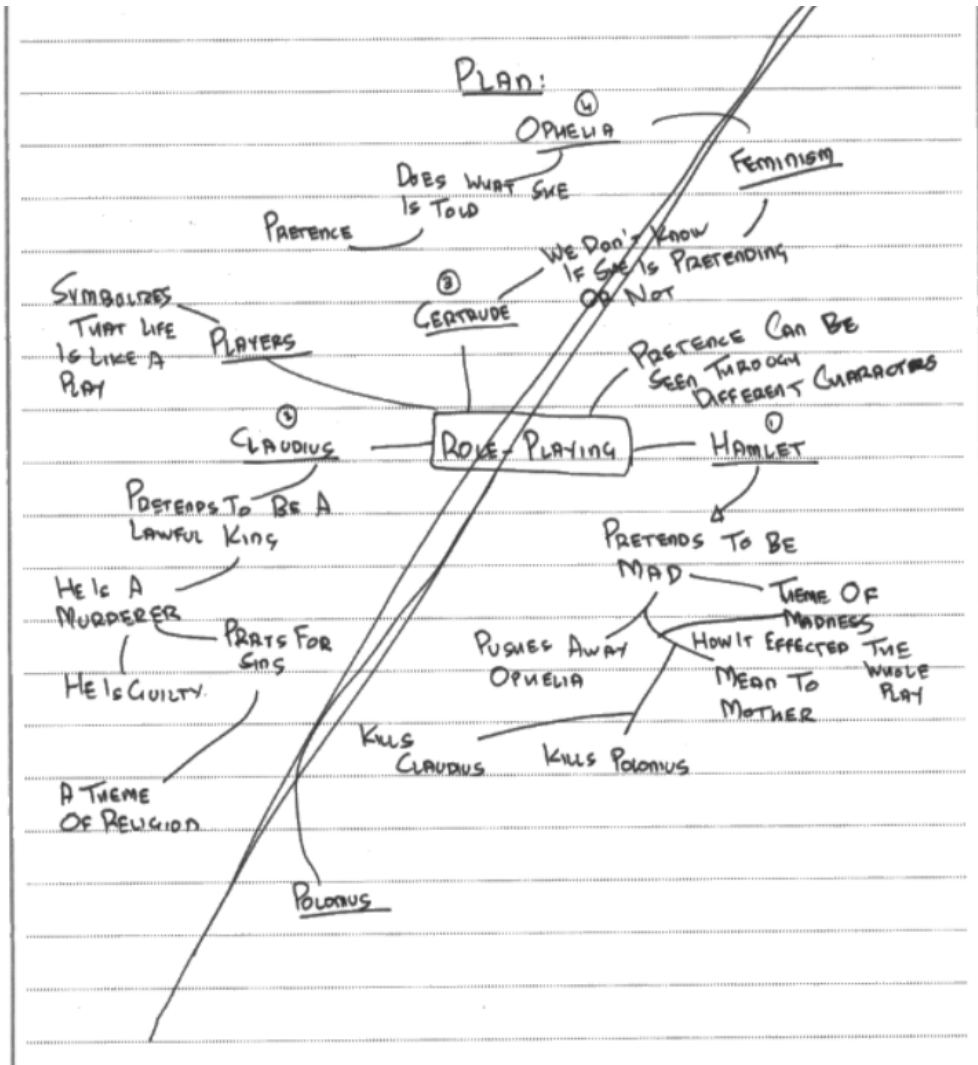 PLAN:
④
OPHELIA
FEMINISM
DOES WHAT SHE
IS TOLD
PRETENCE
WE DON'T KNOW
IF SHE IS PRETENDING
OR NOT
③
GERTRUDE
SYMBOLIZES
THAT LIFE
IS LIKE A
PLAY
PLAYERS
PRETENCE CAN BE
SEEN THROUGH
DIFFERENT CHARACTERS
②
CLAUDIUS
ROLE-PLAYING
①
HAMLET
PRETENDS TO BE A
LAWFUL KING
PRETENDS TO BE
MAD
HE IS A
MURDERER
PRAYS FOR
SINS
HE IS GUILTY.
THEME OF
MADNESS
HOW IT EFFECTED THE
WHOLE
PLAY
PUSHES AWAY
OPHELIA
MEAN TO
MOTHER
KILLS
CLAUDIUS
KILLS POLONIUS
A THEME
OF RELIGION
POLONIUS